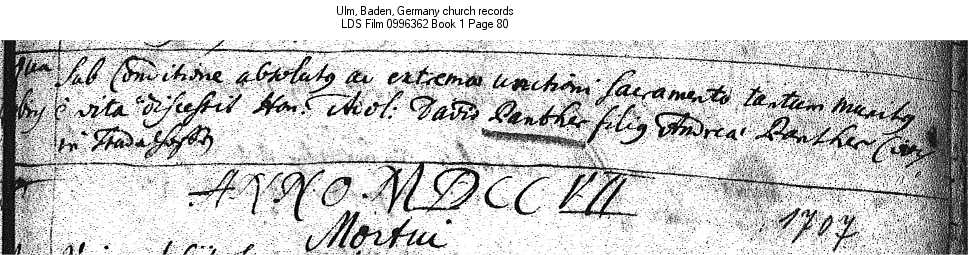 Ulm, Baden, Germany church records
LDS Film 0996362 Book 1 Page 80
sub Conditione absolutq ac extremae unctionis sacramento tantum munitq
è vita discessit Hon: Adol: David Panther filiq Andreae Panther
in
ANNO MDCCVII
1707
Mortui